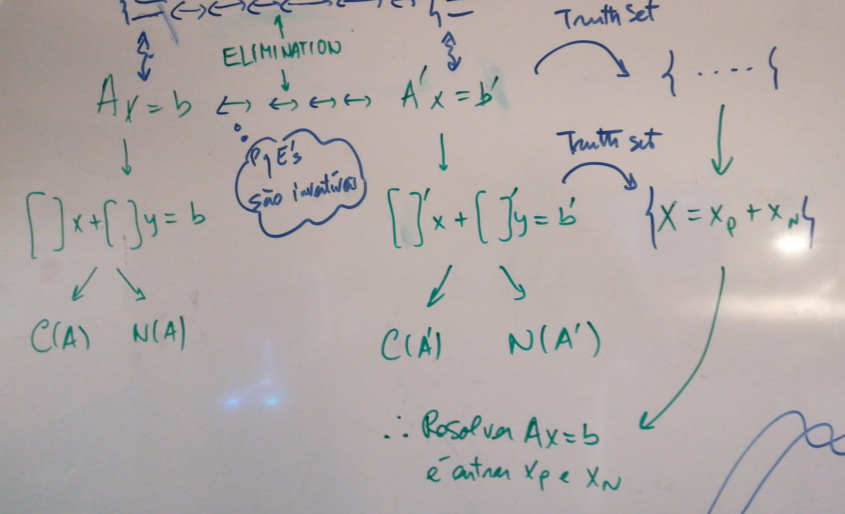 {= ↔ ↔ ↔ ↔ ↔ ↔ {=
Truth Set
ELIMINATION
Ax = b ↔ ↔ ↔ ↔ A'x = b'
{ ..... }
P q E's
são invertivas
Truth set
[ ]x + [ ]y = b
[ ]'x + [ ]'y = b'
{x = x_P + x_N}
C(A) N(A)
C(A') N(A')
∴ Resolver Ax = b
é x_P e x_N